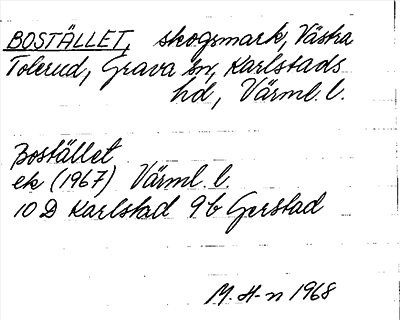 BOSTÄLLET, skogsmark, Västra
Tolerud, Grava sn, Karlstads
hd, Värml. l.
Bostället
ek (1967) Värml. l.
10 D Karlstad 9b Gerstad
M. H-n 1968